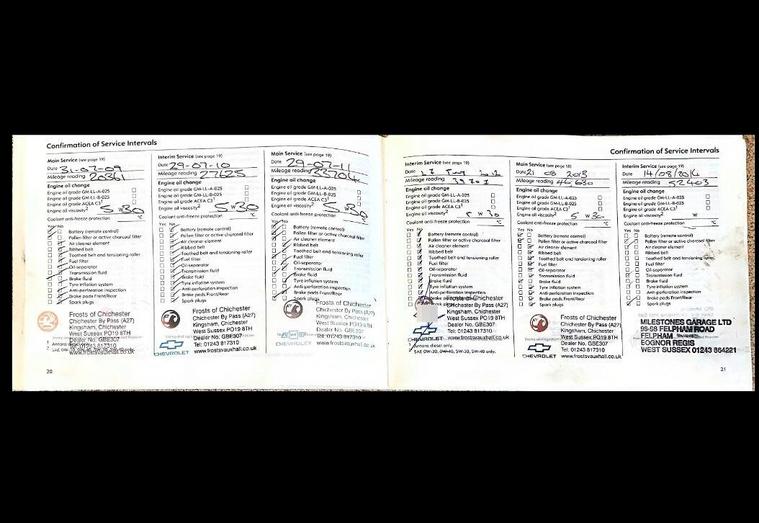 Confirmation of Service Intervals
Main Service (see page 19)
Date 31-07-09
Mileage reading 20361
Engine oil change
Engine oil grade GM-LL-A-025
Engine oil grade GM-LL-B-025
Engine oil grade ACEA C3¹
Engine oil viscosity² 5 W30
Coolant anti-freeze protection °C
Yes No
Battery (remote control)
Pollen filter or active charcoal filter
Air cleaner element
Ribbed belt
Toothed belt and tensioning roller
Fuel filter
Oil-separator
Transmission fluid
Brake fluid
Tyre inflation system
Anti-perforation inspection
Brake pads Front/Rear
Spark plugs
Frosts of Chichester
Chichester By Pass (A27)
Kingsham, Chichester
West Sussex PO19 8TH
Dealer No. GBE307
20
Interim Service (see page 19)
Date 29-07-10
Mileage reading 27625
Engine oil change
Engine oil grade GM-LL-A-025
Engine oil grade GM-LL-B-025
Engine oil grade ACEA C3¹
Engine oil viscosity² 5 W30
Coolant anti-freeze protection °C
Yes No
Battery (remote control)
Pollen filter or active charcoal filter
Air cleaner element
Ribbed belt
Toothed belt and tensioning roller
Fuel filter
Oil-separator
Transmission fluid
Brake fluid
Tyre inflation system
Anti-perforation inspection
Brake pads Front/Rear
Spark plugs
Frosts of Chichester
Chichester By Pass (A27)
Kingsham, Chichester
West Sussex PO19 8TH
Dealer No: GBE307
Tel: 01243 817310
www.frostsvauxhall.co.uk
CHEVROLET
Main Service (see page 19)
Date 29-07-11
Mileage reading
Engine oil change
Engine oil grade GM-LL-A-025
Engine oil grade GM-LL-B-025
Engine oil grade ACEA C3¹
Engine oil viscosity² 5 W30
Coolant anti-freeze protection °C
Yes No
Battery (remote control)
Pollen filter or active charcoal filter
Air cleaner element
Ribbed belt
Toothed belt and tensioning roller
Fuel filter
Oil-separator
Transmission fluid
Brake fluid
Tyre inflation system
Anti-perforation inspection
Brake pads Front/Rear
Spark plugs
Frosts of Chichester
Chichester By Pass (A27)
Kingsham, Chichester
CHEVROLET
Confirmation of Service Intervals
Interim Service (see page 19)
Date
Mileage reading
Engine oil change
Engine oil grade GM-LL-A-025
Engine oil grade GM-LL-B-025
Engine oil grade ACEA C3¹
Engine oil viscosity² 5 W 30
Coolant anti-freeze protection °C
Yes No
Battery (remote control)
Pollen filter or active charcoal filter
Air cleaner element
Ribbed belt
Toothed belt and tensioning roller
Fuel filter
Oil-separator
Transmission fluid
Brake fluid
Tyre inflation system
Anti-perforation inspection
Frosts of Chichester
Chichester By Pass (A27)
Kingsham, Chichester
West Sussex PO19 8TH
Dealer No. GBE307
Tel: 01243 817310
www.frostsvauxhall.co.uk
CHEVROLET
Main Service (see page 19)
Date 21 08 2013
Mileage reading 46630
Engine oil change
Engine oil grade GM-LL-A-025
Engine oil grade GM-LL-B-025
Engine oil grade ACEA C3¹
Engine oil viscosity² 5 W 30
Coolant anti-freeze protection °C
Yes No
Battery (remote control)
Pollen filter or active charcoal filter
Air cleaner element
Ribbed belt
Toothed belt and tensioning roller
Fuel filter
Oil-separator
Transmission fluid
Brake fluid
Tyre inflation system
Anti-perforation inspection
Brake pads Front/Rear
Spark plugs
Frosts of Chichester
Chichester By Pass (A27)
Kingsham, Chichester
West Sussex PO19 8TH
Dealer No: GBE307
Tel: 01243 817310
www.frostsvauxhall.co.uk
CHEVROLET
Interim Service (see page 19)
Date 14/08/2014
Mileage reading 52403
Engine oil change
Engine oil grade GM-LL-A-025
Engine oil grade GM-LL-B-025
Engine oil grade ACEA C3¹
Engine oil viscosity² W
Coolant anti-freeze protection °C
Yes No
Battery (remote control)
Pollen filter or active charcoal filter
Air cleaner element
Ribbed belt
Toothed belt and tensioning roller
Fuel filter
Oil-separator
Transmission fluid
Brake fluid
Tyre inflation system
Anti-perforation inspection
Brake pads Front/Rear
Spark plugs
MILESTONES GARAGE LTD
96-98 FELPHAM ROAD
FELPHAM
BOGNOR REGIS
WEST SUSSEX 01243 864221
21